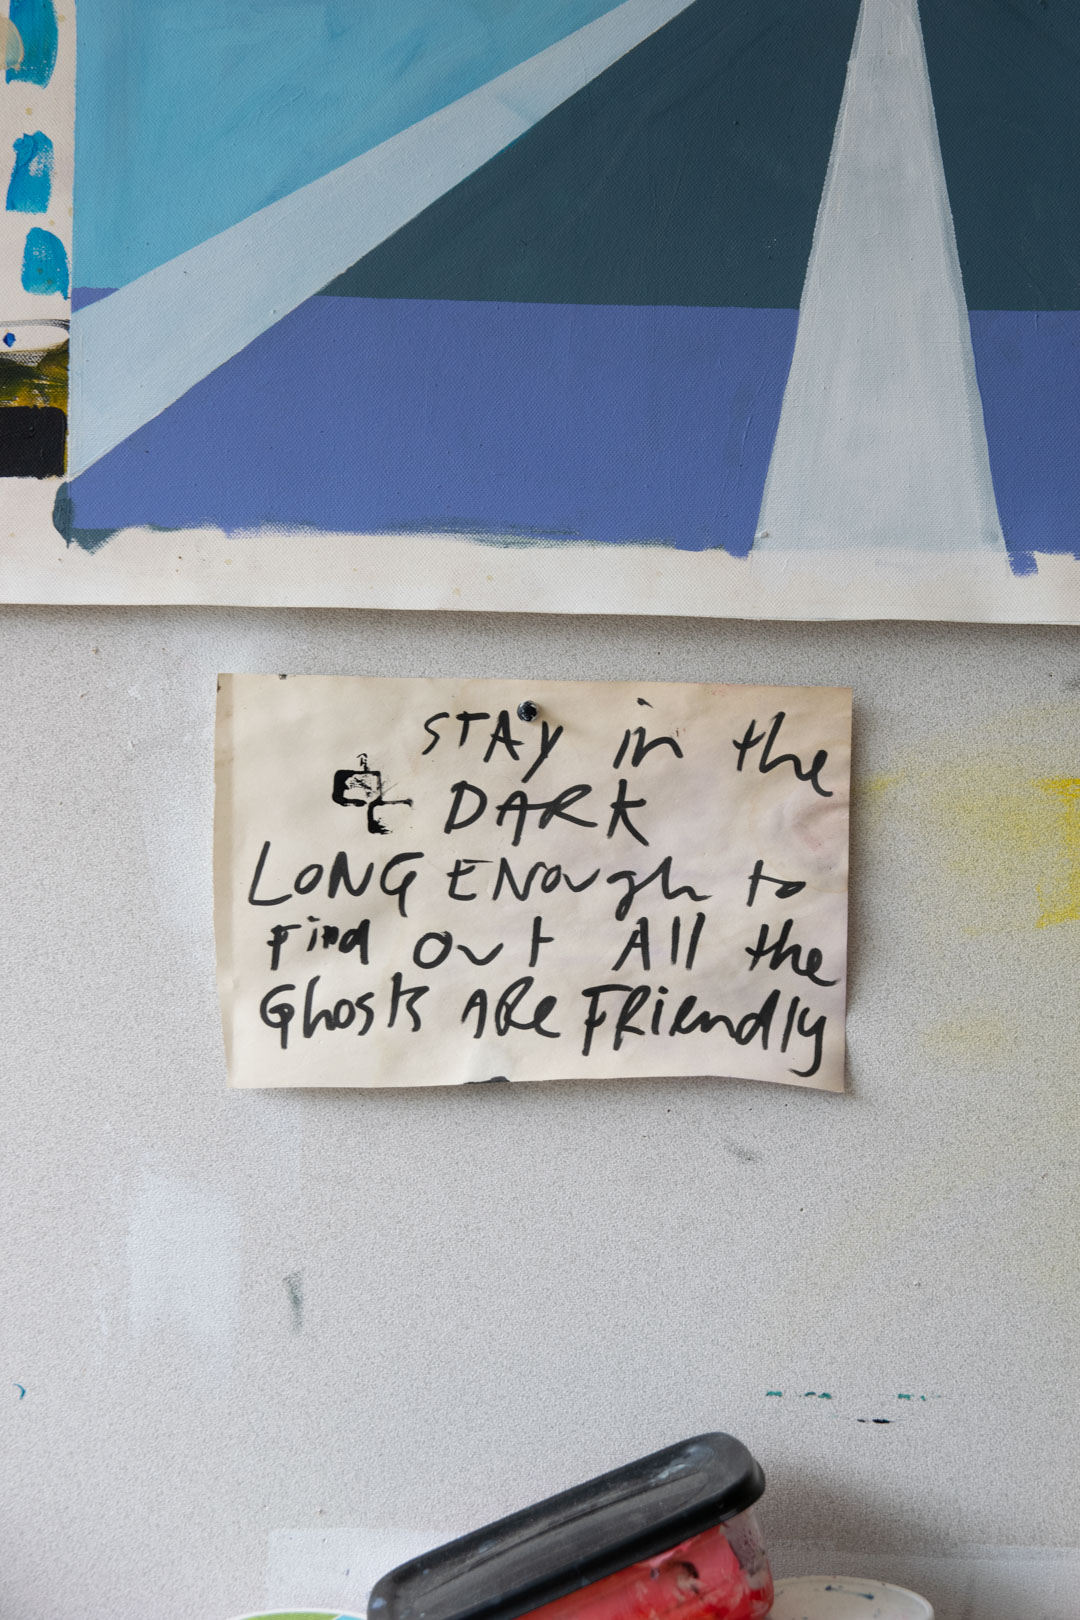 STAy in the
DARK
LONG ENough to
Find out All the
Ghosts ARe FRiendly